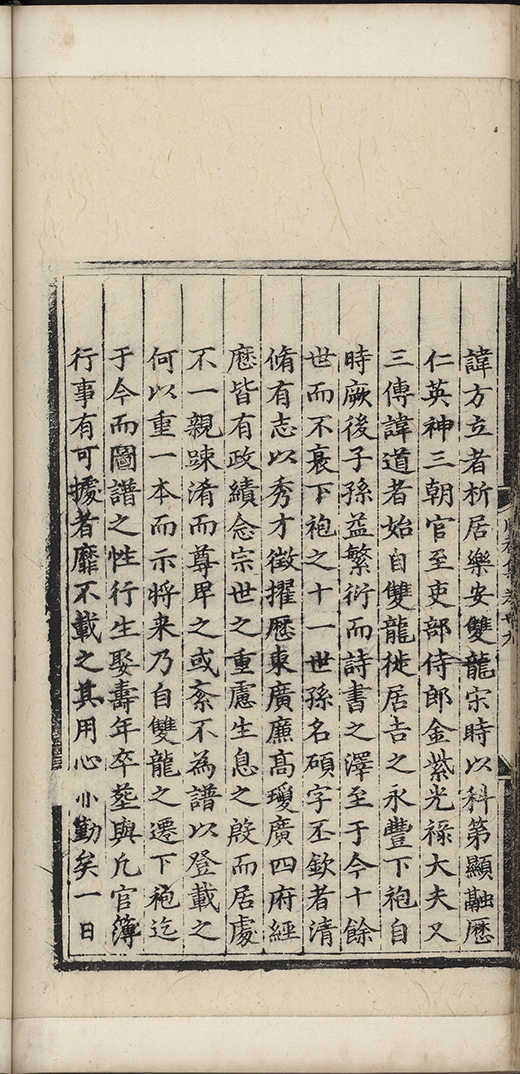 諱方立者析居樂安雙龍宋時以科第顯融歷
仁英神三朝官至吏部侍郎金紫光祿大夫又
三傳諱道者始自雙龍徙居吉之永豐下袍自
時厥後子孫益繁衍而詩書之澤至于今十餘
世而不衰下袍之十一世孫名碩字丕欽者清
脩有志以秀才徵擢歷東廣廉高瓊廣四府經
歷皆有政績念宗世之重慮生息之殷而居處
不一親踈淆而尊卑之或紊不為譜以登載之
何以重一本而示将来乃自雙龍之遷下袍迄
于今而圖譜之性行生娶壽年卒塟與凢官簿
行事有可據者靡不載之其用心小勤矣一日